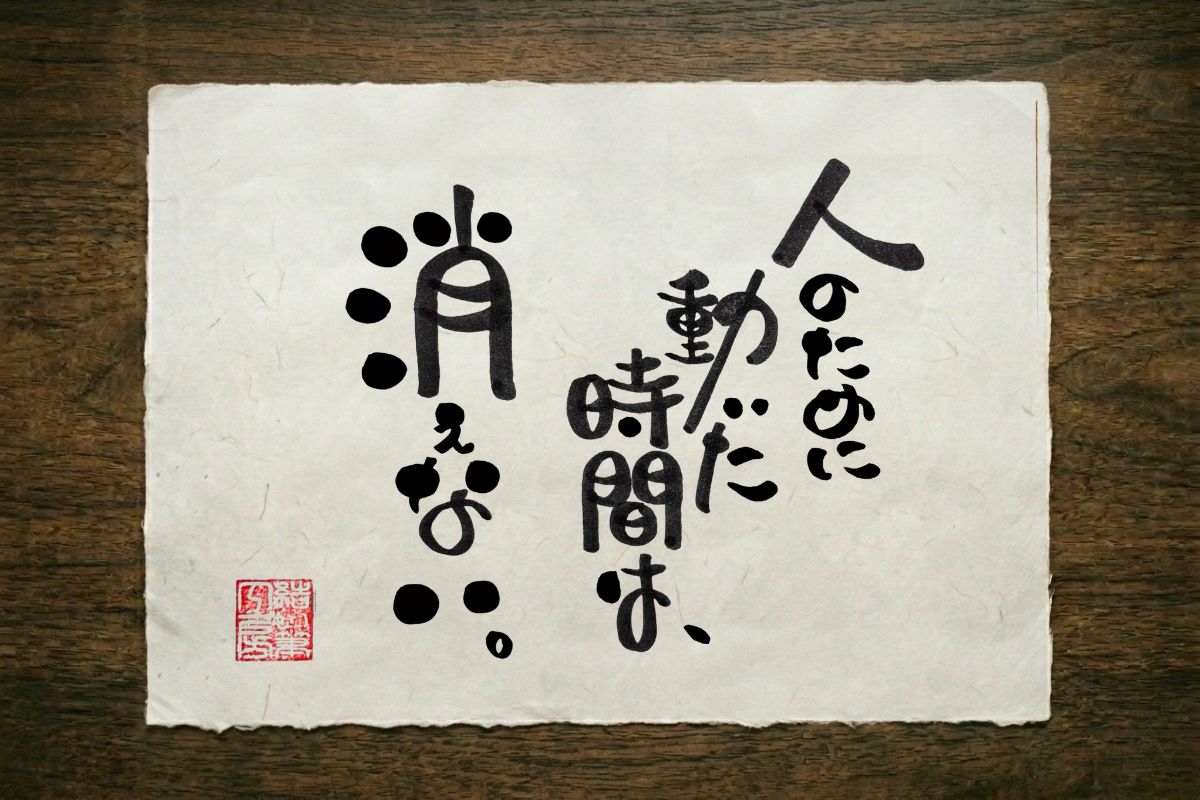 人のために
動だ
時間は、
消えない。